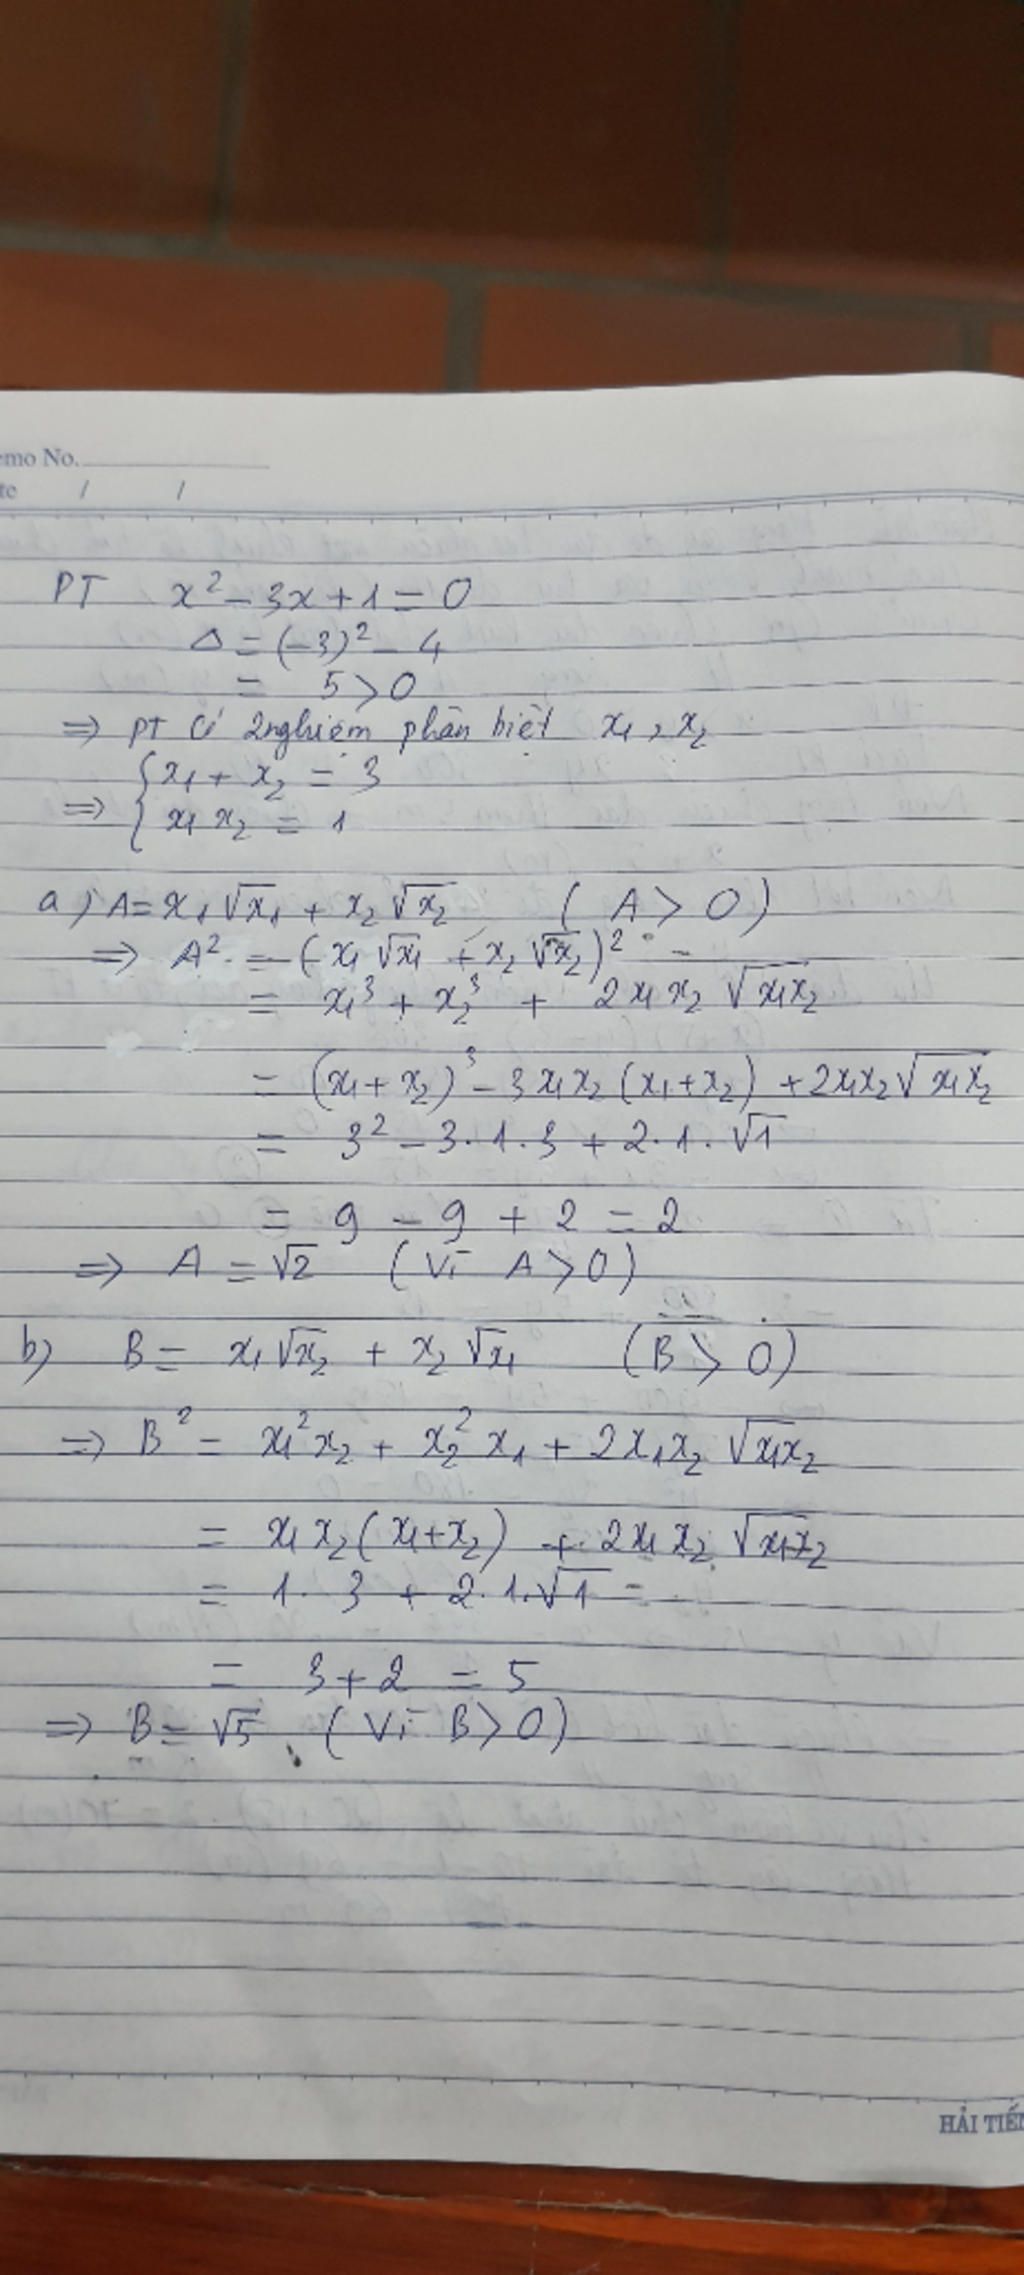 emo No.
te / /
PT x² - 3x + 1 = 0
Δ = (-3)² - 4
= 5 > 0
⇒ PT có 2 nghiệm phân biệt x₁, x₂
⇒ { x₁ + x₂ = 3
x₁ x₂ = 1
a) A = x₁√x₁ + x₂√x₂ (A > 0)
⇒ A² = (x₁√x₁ + x₂√x₂)²
= x₁³ + x₂³ + 2x₁x₂√x₁x₂
= (x₁ + x₂)³ - 3x₁x₂(x₁+x₂) + 2x₁x₂√x₁x₂
= 3² - 3.1.3 + 2.1.√1
= 9 - 9 + 2 = 2
⇒ A = √2 (Vì A > 0)
b) B = x₁√x₂ + x₂√x₁ (B > 0)
⇒ B² = x₁²x₂ + x₂²x₁ + 2x₁x₂√x₁x₂
= x₁x₂(x₁+x₂) + 2x₁x₂√x₁x₂
= 1.3 + 2.1.√1 =
= 3 + 2 = 5
⇒ B = √5 (Vì B > 0)
HẢI TIẾN